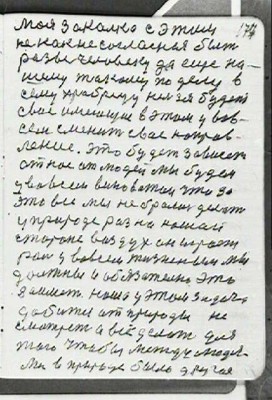 моя закалка с этим
не как не согласная быт
разве человеку да еще на-
шему такому по делу в
сему храбрецу нельзя будет
свое имеющие в этом у вов-
сем сменит свое направ-
ление. Это будет зависеть
от нос от людей мы будем
у вовсем виноватси что за
это все мы не брались делат
у природе раз на нашей
стороне воздух он играет
рол у вовсем жизненым мы
должны и обязателно это
заимет. наша у этом задача
добится от природы не
смотрет а всё делат для
того чтобы между людя-
ми в природе было другая
174